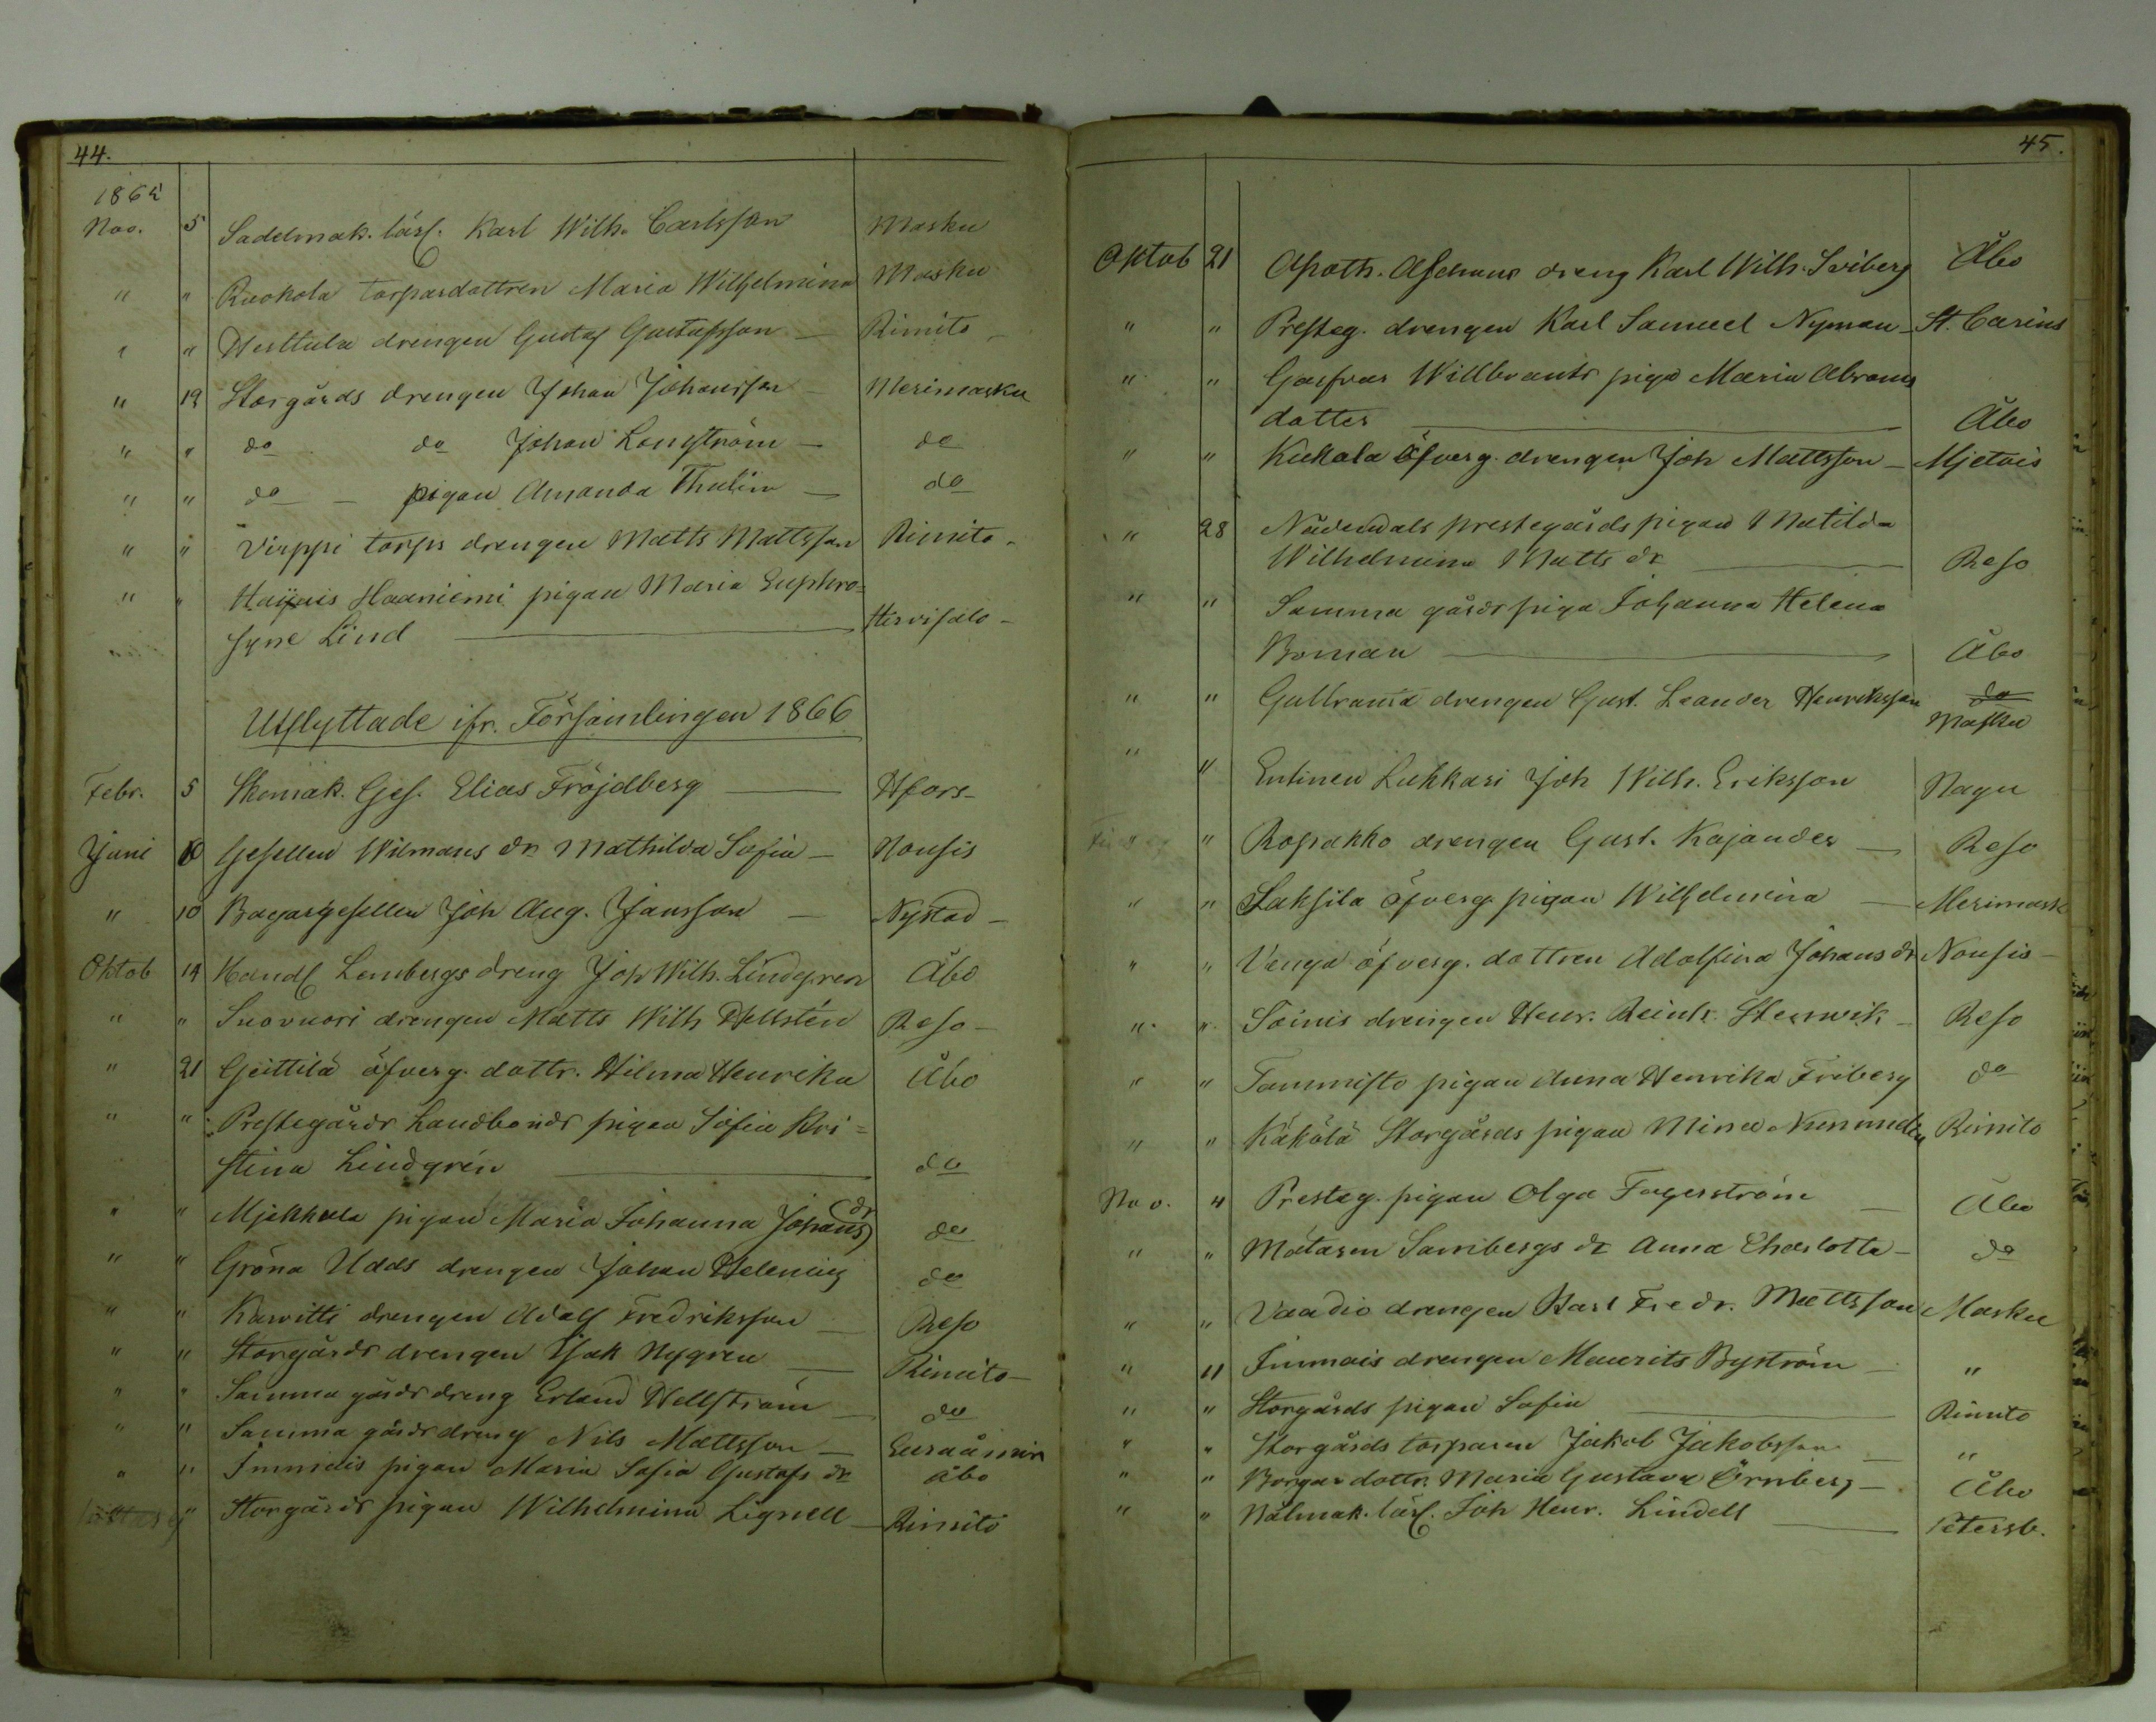 44.
1865
Nov. 5 Sadelmak. lärl. Karl Wilh. Carlsson Masku
" " Ruokola torpardottren Maria Wilhelmina Masku
" " Hesttula drengen Gustaf Gustafsson — Rimito —
" 19 Storgårds drengen Johan Johansson — Merimasku
" " do do Johan Longström — do
" " do — pigan Amanda Thulin — do
" " Virppi torps drengen Matts Mattsson Rimito -
" " Haijais Haaniemi pigan Maria Euphro=
syne Lind — Hirvisalo -
Utflyttade ifr. Församlingen 1866
Febr. 5 Skomak. Ges. Elias Fröjdberg — Hfors-
Juni 10 Gesellen Wilmans dr Mathilda Sofia — Nousis
" 10 Bagargesellen Joh Aug. Jansson — Nystad —
Oktob 14 Handl Lembergs dreng Joh Wilh. Lindgren Åbo
" " Suovuori drengen Matts Wilh Hellstén Reso -
" 21 Geittilä öfverg. dottr. Hilma Henrika Åbo
" " Prestegårds Landbonds pigan Sofia Kri=
stina Lindgrén — do
" " Mjekkala pigan Maria Johanna Johans dr do
" " Gröna Udds drengen Johan Helenius do
" " Karvitti drengen Adolf Fredriksson — Reso
" " Storgårds drengen Isak Nygren — Rimito —
" " Samma gårds dreng Erland Hellström — do
" " Samma gårds dreng Nils Mattsson — Euraåmin
" " Immais pigan Maria Sofia Gustafs dr Åbo
" " Storgårds pigan Wilhelmina Lignell — Rimito
45.
Oktob 21 Apoth. Aschans dreng Karl Wilh. Sviberg Åbo
" " Presteg. drengen Karl Samuel Nyman — St. Carins
" " Garfvar Willbrants piga Maria Abrams
dotter — Åbo
" " Kukola öfverg. drengen Joh Mattsson — Mjetois
" 28 Nådendals prestegårds pigan Matilda
Wilhelmina Matts dr — Reso
" " Samma gårds piga Johanna Helena
Boman — Åbo
" " Gullranta drengen Gust. Leander Henriksson do
Masku
" " Entinen Luhkari Joh Wilh. Eriksson Nagu
" " Ropakko drengen Gust. Kajander — Reso
" " Laksila öfverg. pigan Wilhelmina — Merimask
" " Venga öfverg. dottren Adolfina Johans dr Nousis —
" " Soinis drengen Henr. Reinh. Stenwik — Reso
" " Tammisto pigan Anna Henrika Friberg do
" " Käkölä Storgårds pigan Mina Numelin Rimito
Nov. 4 Presteg. pigan Olga Fagerström — Åbo
" " Mätaren Sambergs dr Anna Charlotta — do
" " Vaadio drengen Karl Fredr. Mattsson Masku
" 11 Immais drengen Maurits Byström — "
" " Storgårds pigan Sofia — Rimito
" " Storgårds torparen Jakob Jakobsson — "
" " Borgar dottr. Maria Gustava Örnberg — Åbo
" " Nålmak. lärl. Joh Henr. Lindell — Petersb.